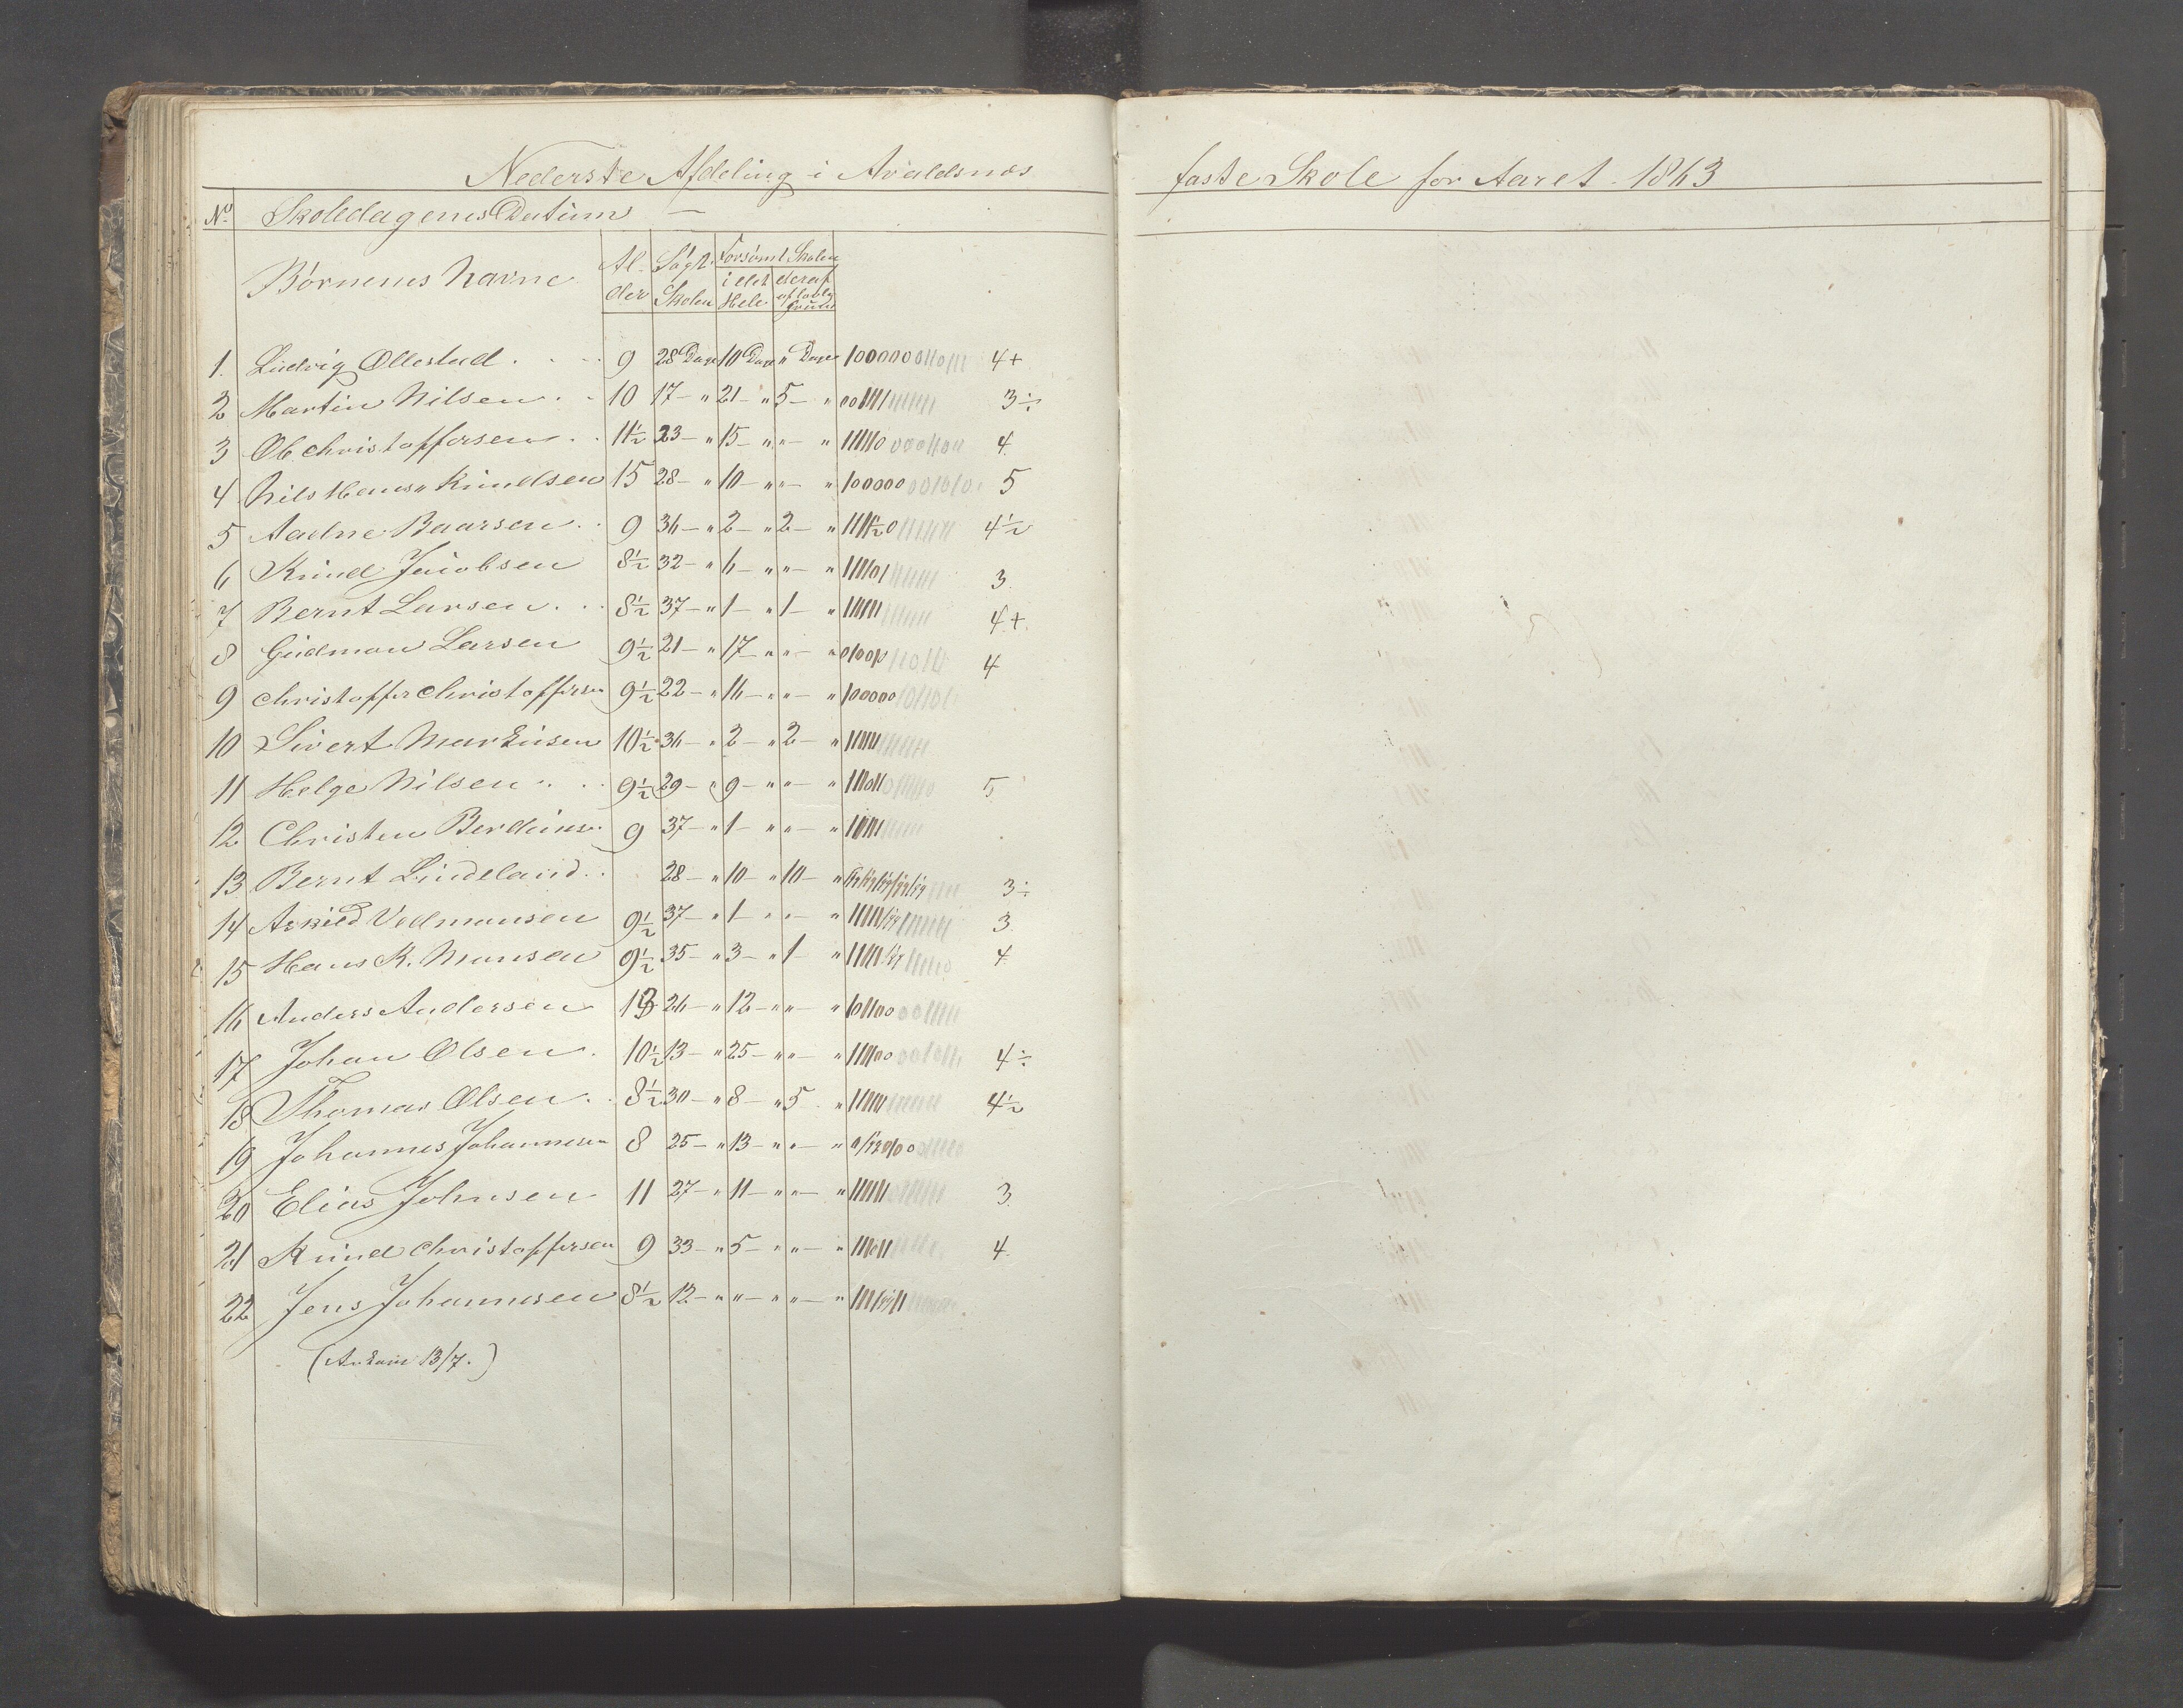 Nederste Afdeling i Avaldsnes faste Skole for Aaret 1863
No. Skoledagenes Datum —
Børnenes Navne Alder Søgt Skolen Forsømt Skolen i det Hele deraf af lovlig Grund
1. Ludvig Ollestad . . . 9 28 Dage 10 Dage " Dage 4+
2 Martin Nilsen . . 10 17 — " 21 — " 5 — " 3÷
3 Ole Christoffersen . . 11½ 23 — " 15 — " " — " 4.
4 Nils Hans. Knudsen 15 28 — " 10 — " " — " 5
5 Aadne Baarsen . . 9 36 — " 2 — " 2 — " 4½
6 Knud Jacobsen 8½ 32 — " 6 — " " — " 3.
7 Bernt Larsen . . . 8½ 37 — " 1 — " 1 — " 4+.
8 Gudmon Larsen 9½ 21 — " 17 — " " — " 4
9 Christoffer Christoffersen 9½ 22 — " 16 — " " — "
10 Sivert Markusen 10½ 36 — " 2 — " 2 — "
11 Helge Nilsen . . . 9½ 29 — " 9 — " " — " 5
12 Christen Berdines. 9 37 — " 1 — " " — "
13 Bernt Lindeland . . 28 — " 10 — " 10 — " 3÷
14 Askild Vedmonsen 9½ 37 — " 1 — " " — " 3.
15 Hans K. Monsen 9½ 35 — " 3 — " 1 — " 4.
16 Anders Andersen 13 26 — " 12 — " " — "
17 Johan Olsen . 10½ 13 — " 25 — " " — " 4÷
18 Thomas Olsen . . 8½ 30 — " 8 — " 5 . " 4½
19 Johannes Johannesen 8 25 — " 13 — " " — "
20 Elias Johnsen 11 27 — " 11 — " " — " 3.
21 Knud Christoffersen 9 33 — " 5 — " " — " 4.
22 Jens Johannesen 8½ 12 — " " — " " — "
(Ankom 13/7.)